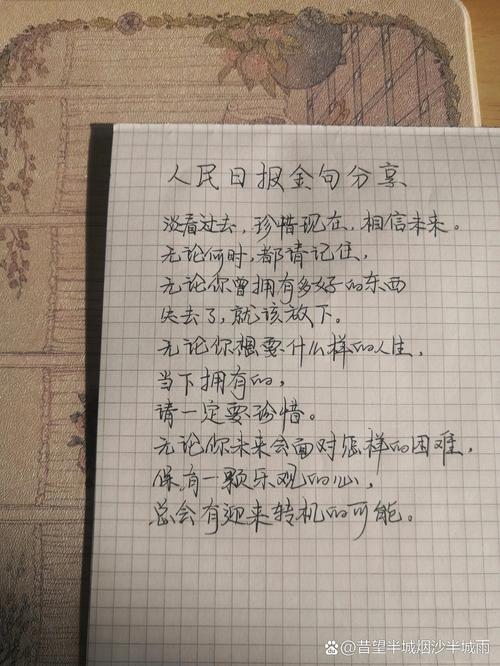 人民日报金句分享
淡看过去，珍惜现在，相信未来。
无论何时，都请记住，
无论你曾拥有多好的东西
失去了，就该放下。
无论你想要什么样的人生，
当下拥有的，
请一定要珍惜。
无论你未来会面对怎样的困难，
保有一颗乐观的心，
总会有迎来转机的可能。
昔望半城烟沙半城雨